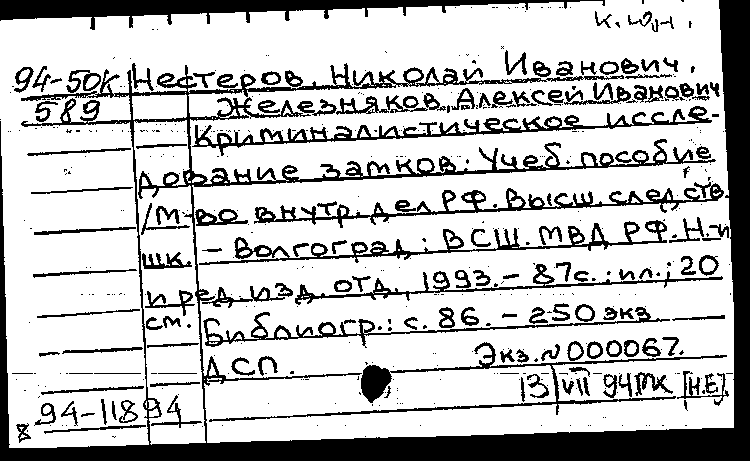 К.Ю.Н.
94-50К Нестеров, Николай Иванович,
589 Железняков, Алексей Иванович
Криминалистическое иссле-
дование замков: Учеб. пособие
/М-во внутр. дел РФ. Высш. следств.
шк. - Волгоград: ВСШ МВД РФ. Н-и
и ред. изд. отд., 1993. - 87с.: ил.; 20
см. Библиогр.: с. 86. - 250 экз
ДСП. Экз. N 000067.
13 VII 94 [Н.Е]
94-11894
8